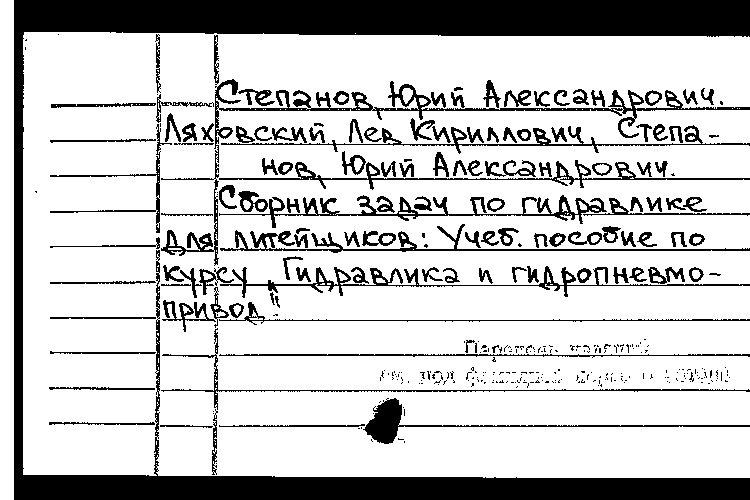 Степанов, Юрий Александрович.
Ляховский, Лев Кириллович, Степа-
нов, Юрий Александрович.
Сборник задач по гидравлике
для литейщиков: Учеб. пособие по
курсу „Гидравлика и гидропневмо-
привод".
Перечень изданий
см. под